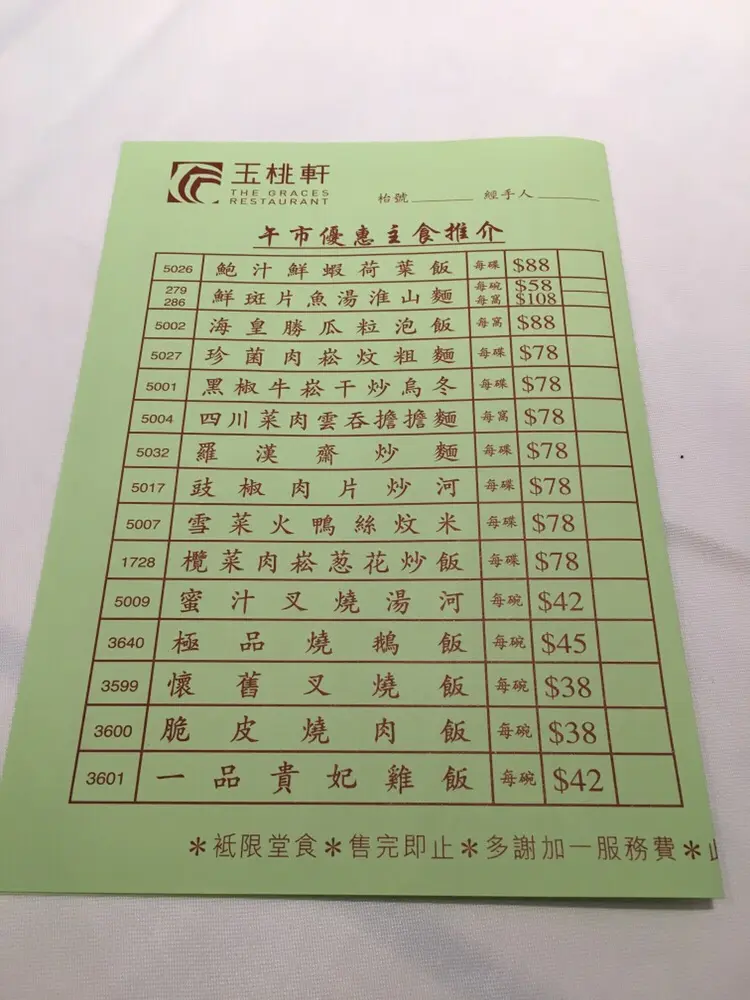 玉桃軒
THE GRACES
RESTAURANT
枱號______ 經手人______
午市優惠主食推介
5026 鮑汁鮮蝦荷葉飯 每碟 $88
279 鮮斑片魚湯淮山麵 每碗 $58
286 每窩 $108
5002 海皇勝瓜粒泡飯 每窩 $88
5027 珍菌肉崧炆粗麵 每碟 $78
5001 黑椒牛崧干炒烏冬 每碟 $78
5004 四川菜肉雲吞擔擔麵 每窩 $78
5032 羅漢齋炒麵 每碟 $78
5017 豉椒肉片炒河 每碟 $78
5007 雪菜火鴨絲炆米 每碟 $78
1728 欖菜肉崧葱花炒飯 每碟 $78
5009 蜜汁叉燒湯河 每碗 $42
3640 極品燒鵝飯 每碗 $45
3599 懷舊叉燒飯 每碗 $38
3600 脆皮燒肉飯 每碗 $38
3601 一品貴妃雞飯 每碗 $42
＊祗限堂食＊售完即止＊多謝加一服務費＊